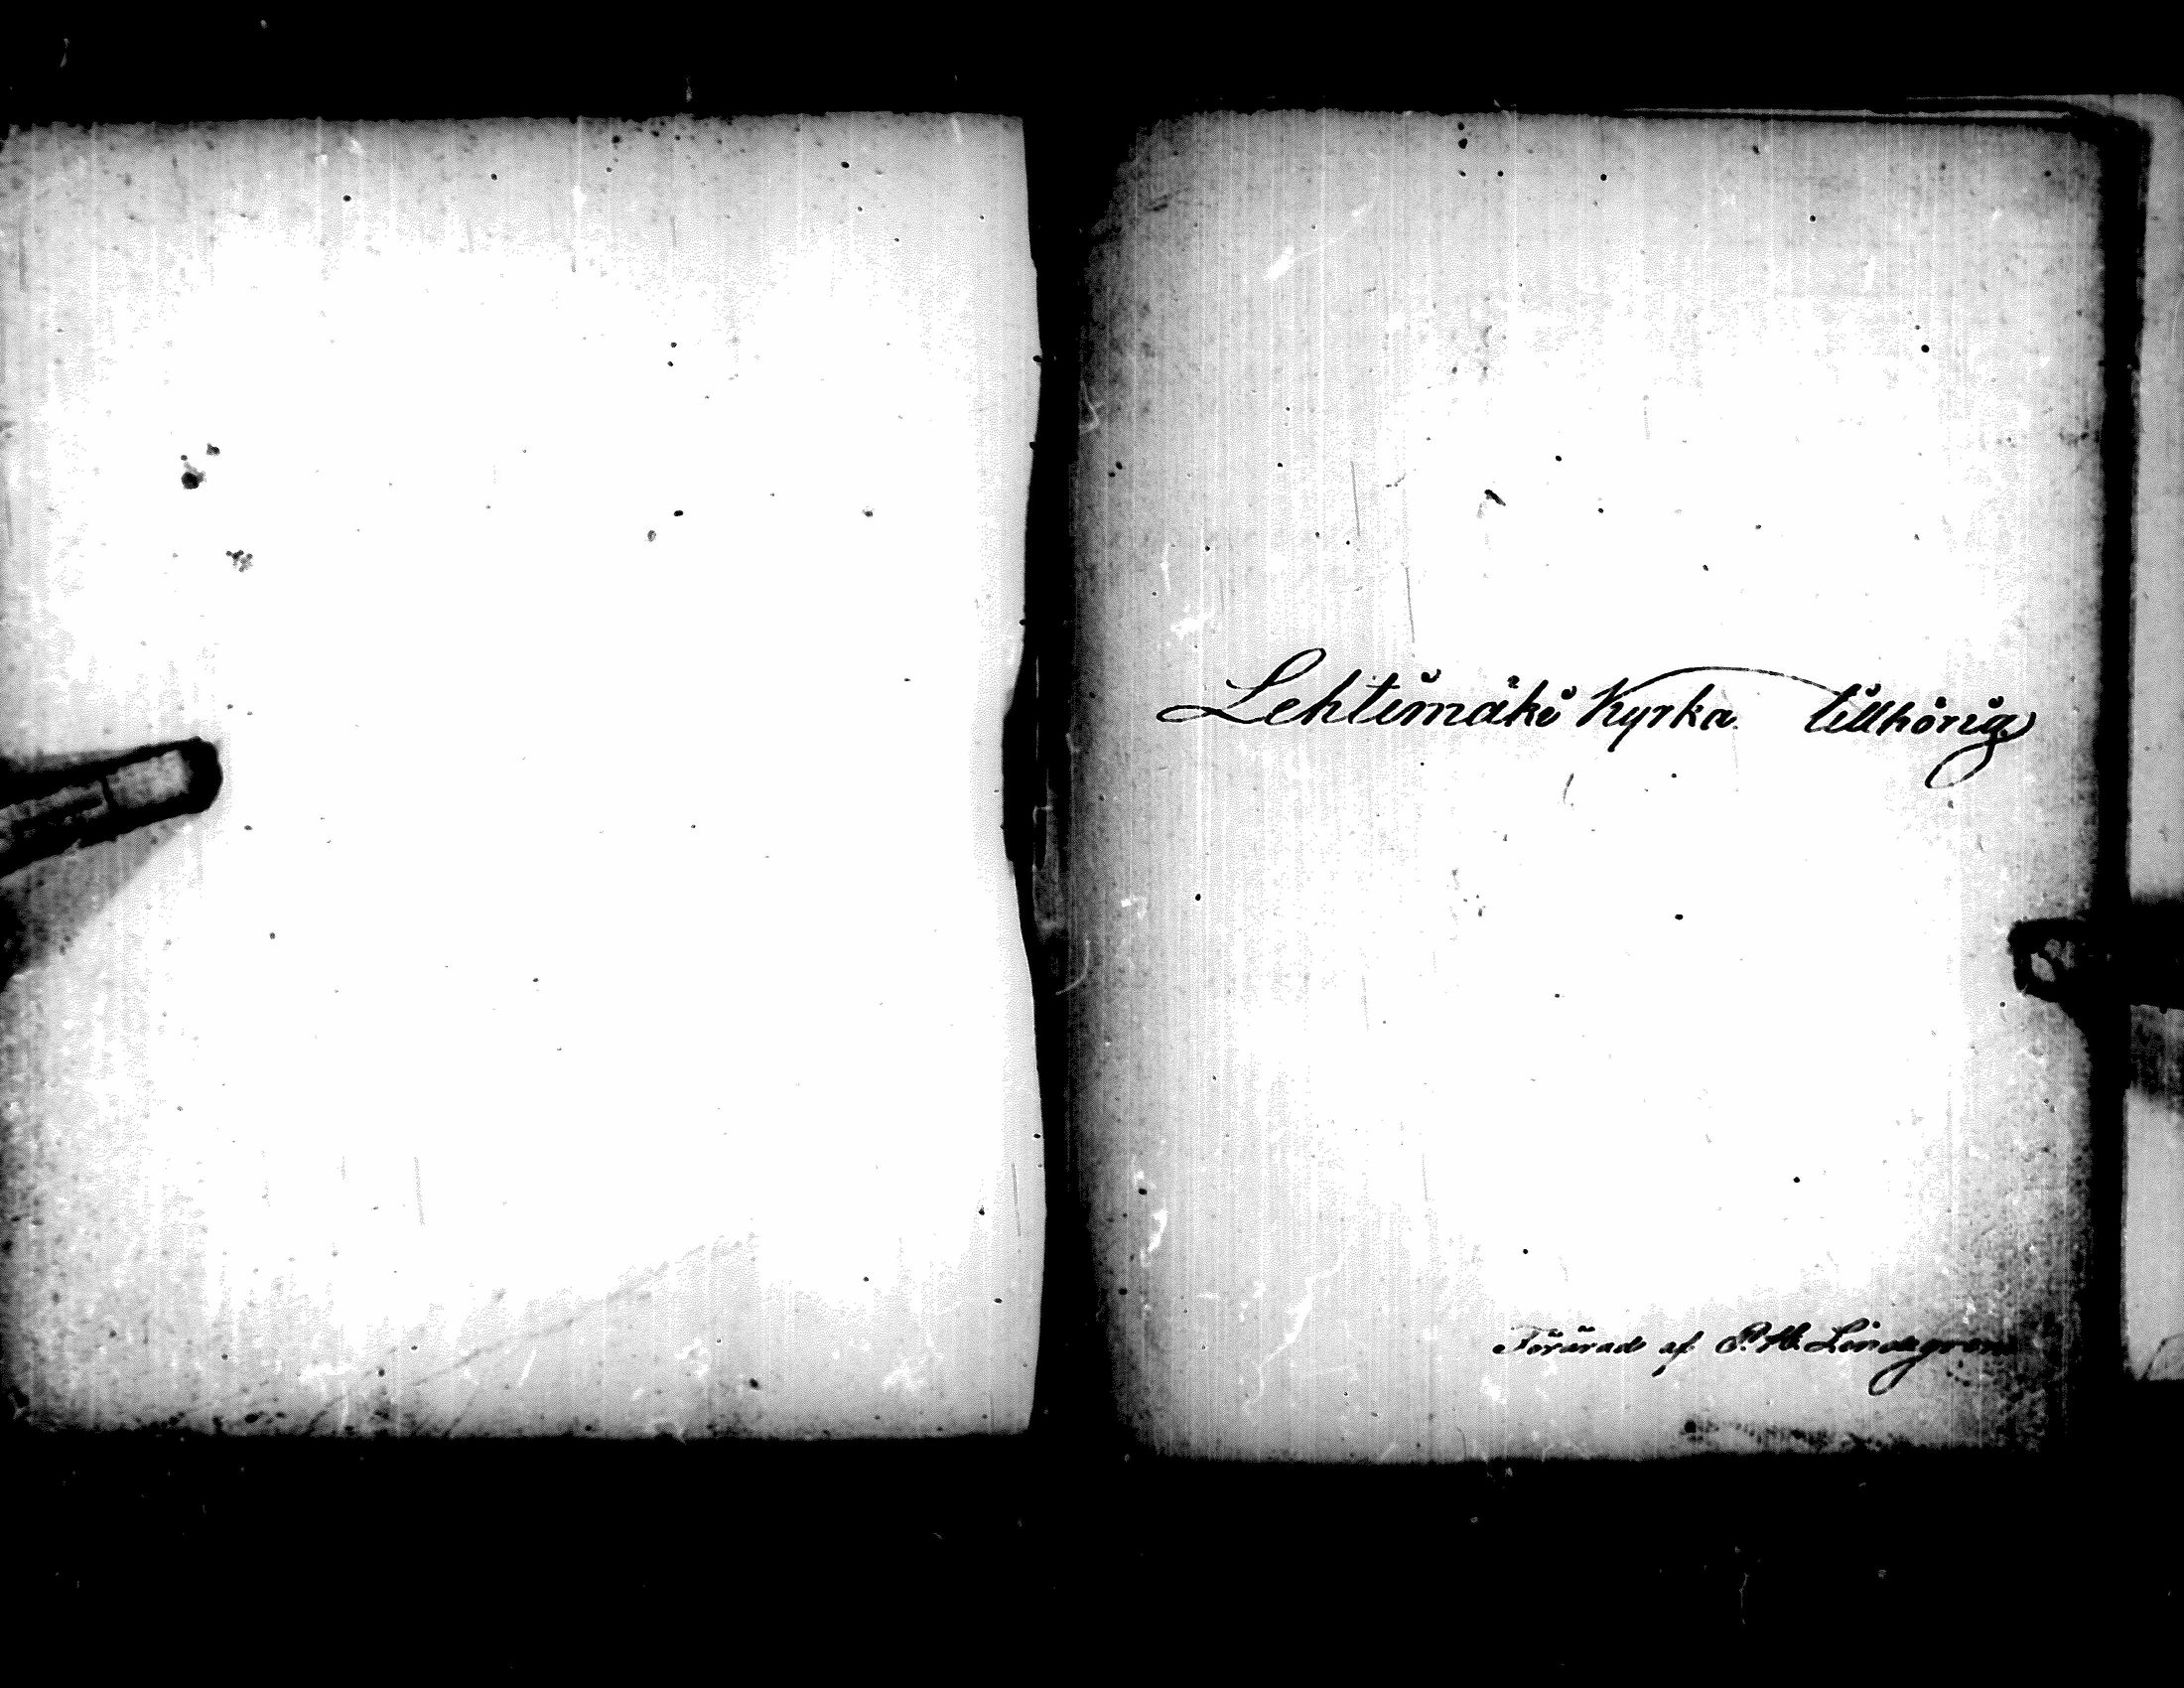 Lehtimäki Kyrka tillhörig
Förärad af P. H. Lindegren